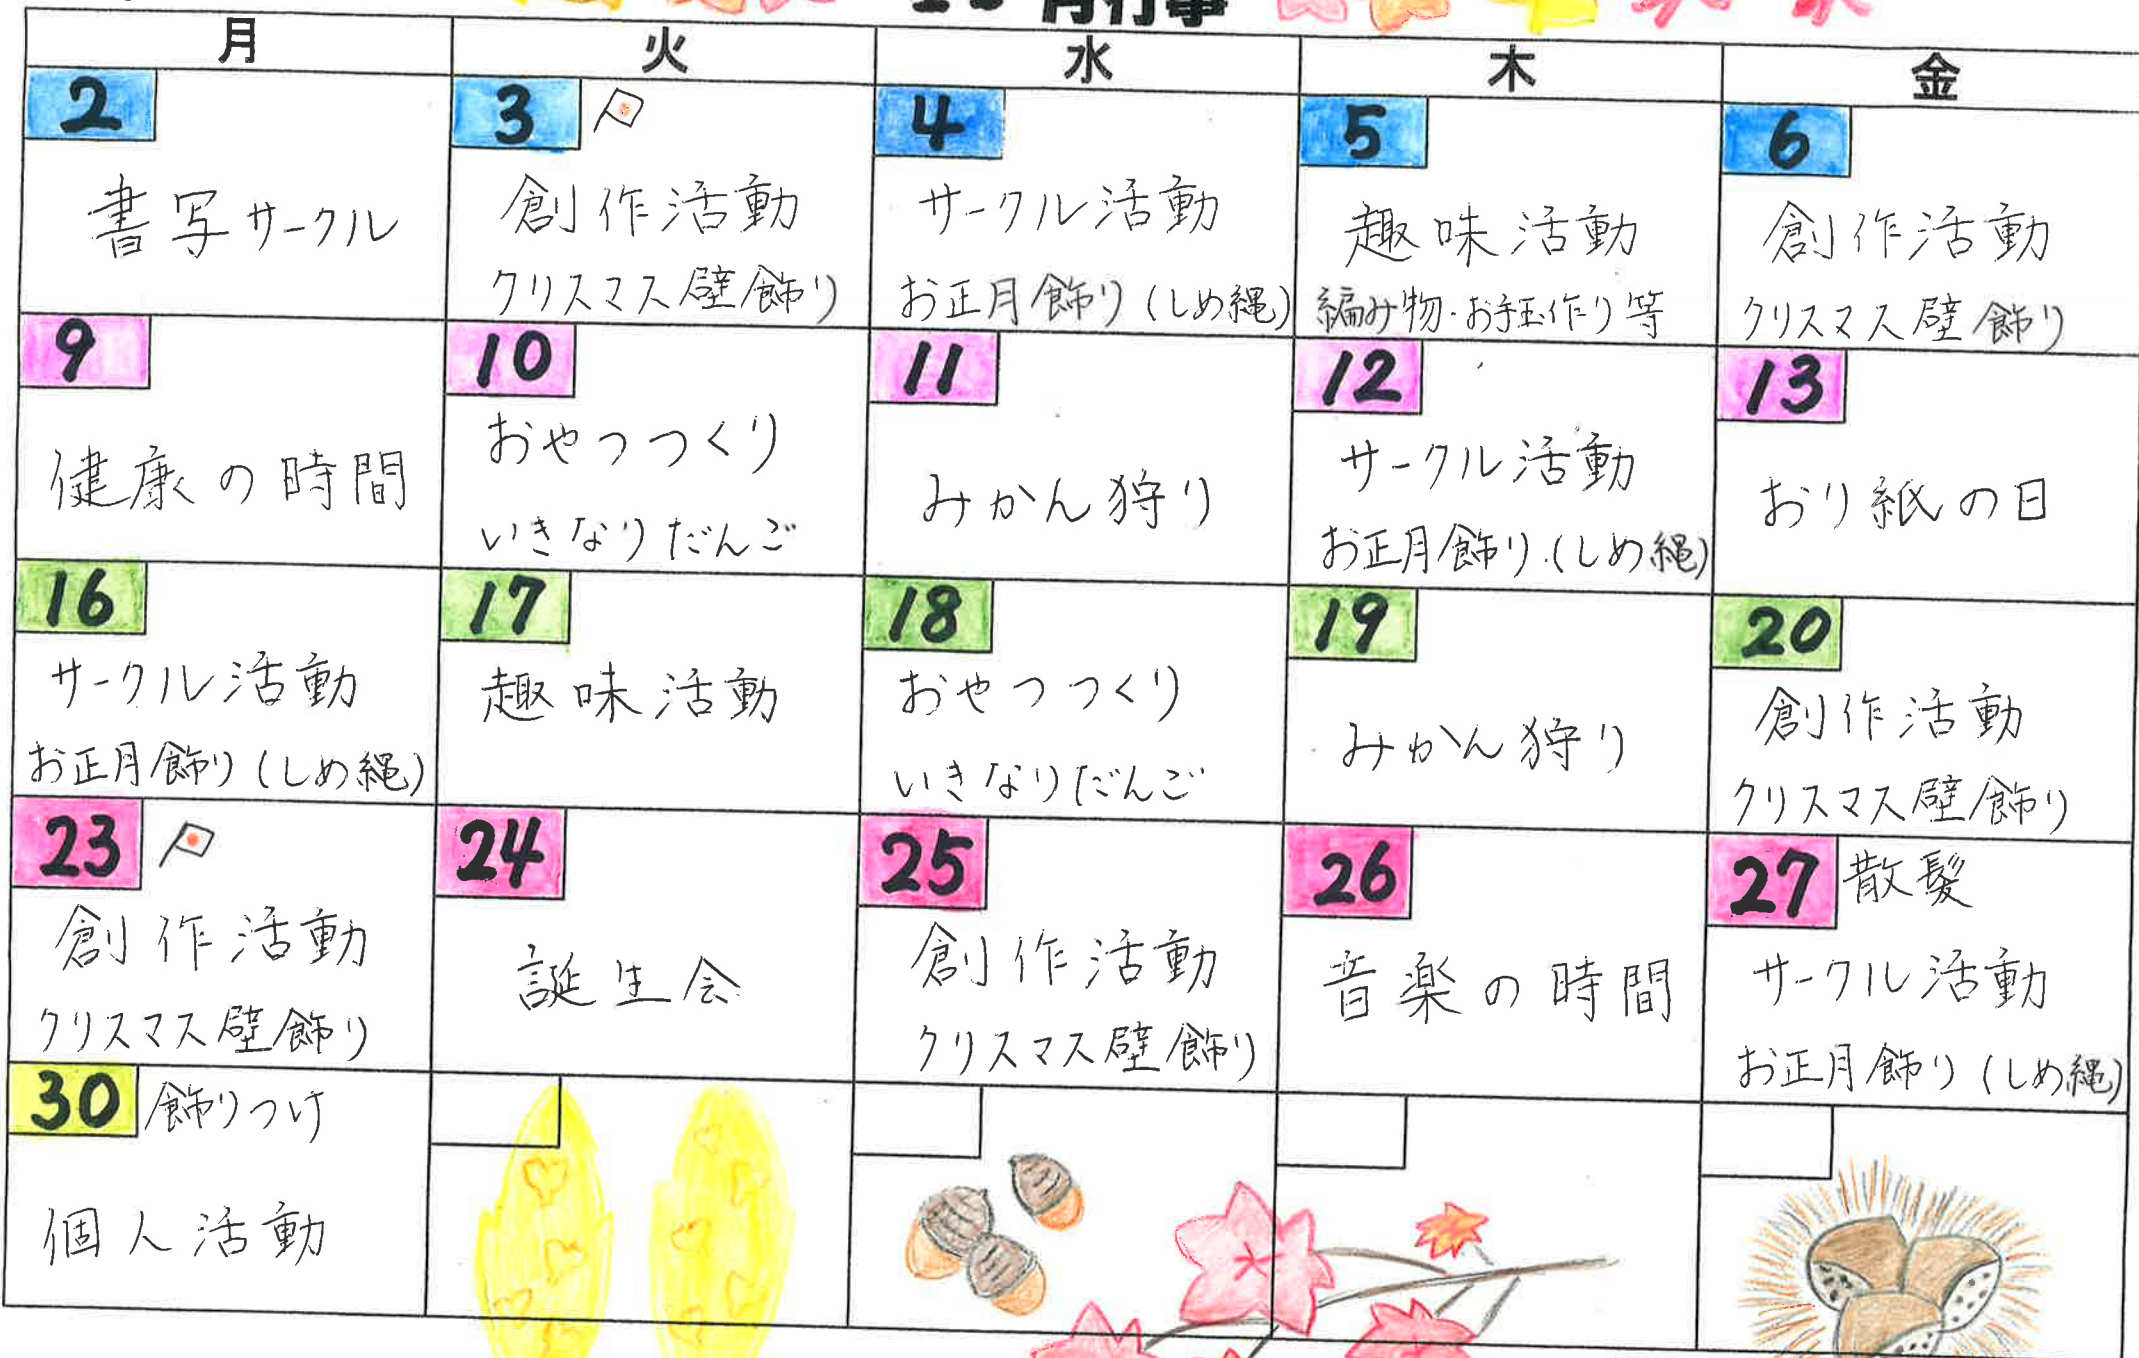 月行事
月 火 水 木 金
2
書写サークル
3
創作活動
クリスマス壁飾り
4
サークル活動
お正月飾り(しめ縄)
5
趣味活動
編み物・お手玉作り等
6
創作活動
クリスマス壁飾り
9
健康の時間
10
おやつつくり
いきなりだんご
11
みかん狩り
12
サークル活動
お正月飾り(しめ縄)
13
おり紙の日
16
サークル活動
お正月飾り(しめ縄)
17
趣味活動
18
おやつつくり
いきなりだんご
19
みかん狩り
20
創作活動
クリスマス壁飾り
23
創作活動
クリスマス壁飾り
24
誕生会
25
創作活動
クリスマス壁飾り
26
音楽の時間
27 散髪
サークル活動
お正月飾り(しめ縄)
30 飾りつけ
個人活動